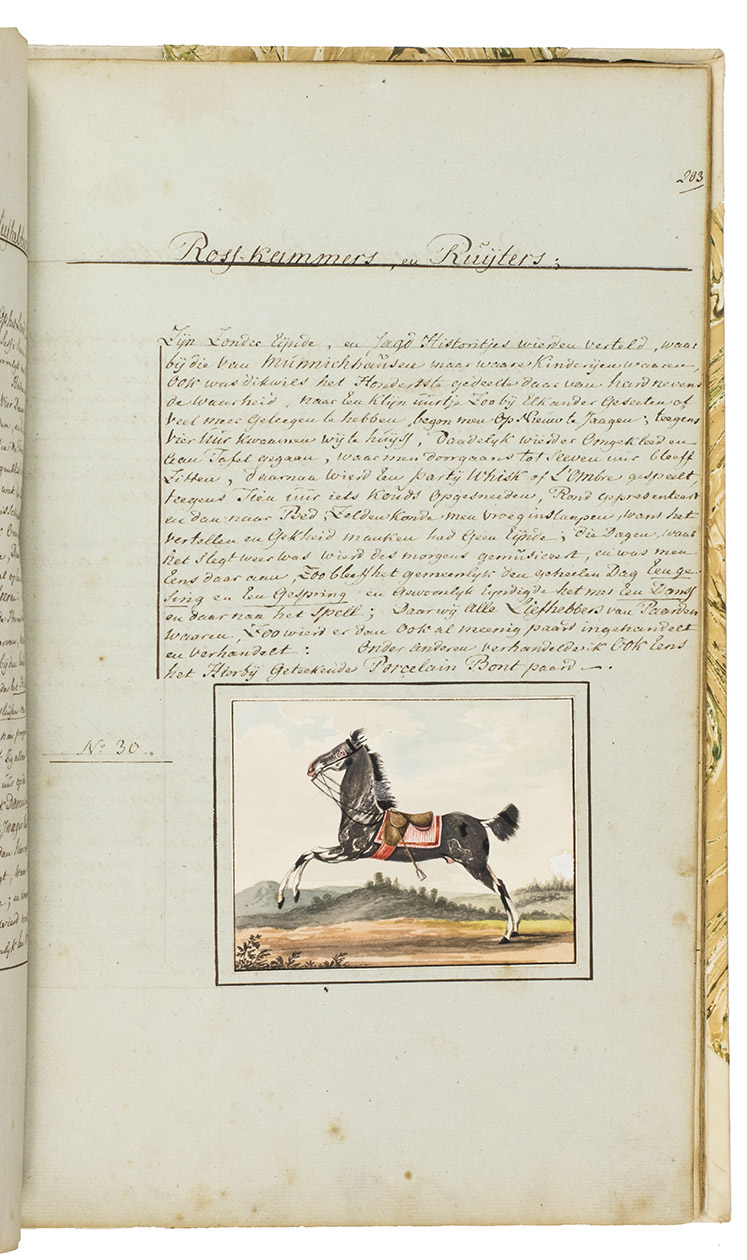 203
Ross-kammers, en Ruijters;
Zijn Zonder Eijnde, en Jagd Historitjes wierden verteld, waar
bij die van Münnichhausen maar waare Kinderijen waaren
Ook was dikwils het Honderste gedeelte daar van hard nevens
de waarheid, naar Een Klijn üürtje Zoo bij Elkander Geseeten of
veel meer Geleegen te hebben, begon men Op Nieuw te Jaagen; teegens
Vier üür kwaamen wij te huijss, Daadelijk wierder Omgekleed en
Aan Tafel gegaan, waar men doorgaans tot Seeven üür bleeff
Zitten, daarnaa wierd Een party Whisk of L'Ombre gespeelt,
teegens Tien üür iets Koüds Opgesneeden, Rond gepresenteert
en dan naar Bed, Zelden konde men vroeg inslaapen, want het
vertellen en Gekheid maaken had Geen Eijnde; die Dagen, waar
het slegt weer was wierd des morgens gemüsiceert, en was men
Eens daar aan, Zoo bleeff het gemeenlijk den geheelen Dag Een ge
Sing en Een Gespring en Gewoonlijk Eyndigde het met Een Danss
en daar naa het Spell; Daar wij Alle Liefhebbers van Paarden
waaren, Zoo wierd er dan Ook al meenig paard ingehandelt
en verhandelt: Onder Anderen verhandelde ik Ook Eens
het Hierbij Geteekende Porcelain Bont paard —.
No 30.